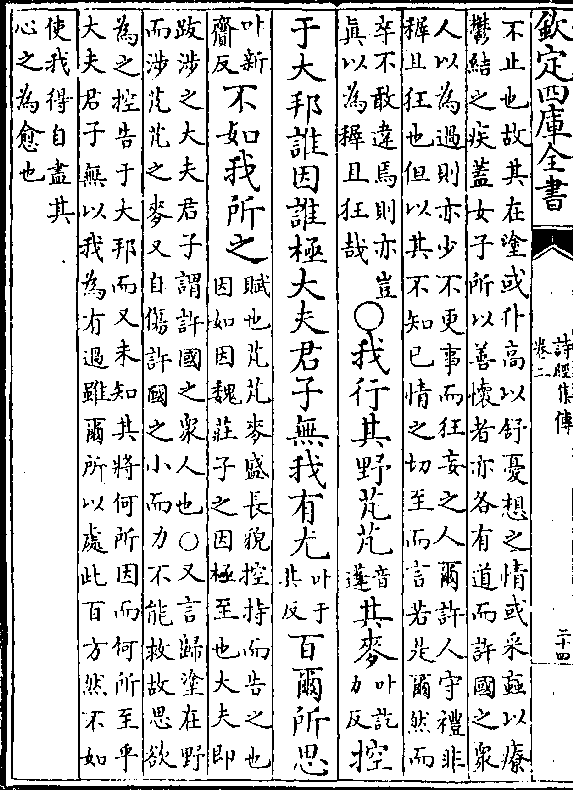 欽定四庫全書
詩經集傳
卷二
二十四
不止也故其在塗或仆高以舒憂想之情或采蝱以療
鬱結之疾蓋女子所以善懷者亦各有道而許國之衆
人以為過則亦少不更事而狂妄之人爾許人守禮非
穉且狂也但以其不知已情之切至而言若是爾然而
卒不敢違焉則亦豈
眞以為穉且狂哉
○我行其野芃芃音蓬其麥叶訖力反控
于大邦誰因誰極大夫君子無我有尤叶于其反百爾所思
叶新齎反不如我所之
賦也芃芃麥盛長貌控持而告之也
因如因魏莊子之因極至也大夫即
跋涉之大夫君子謂許國之衆人也○又言歸塗在野
而涉芃芃之麥又自傷許國之小而力不能救故思欲
為之控告于大邦而又未知其將何所因而何所至乎
大夫君子無以我為有過雖爾所以處此百方然不如
使我得自盡其
心之為愈也